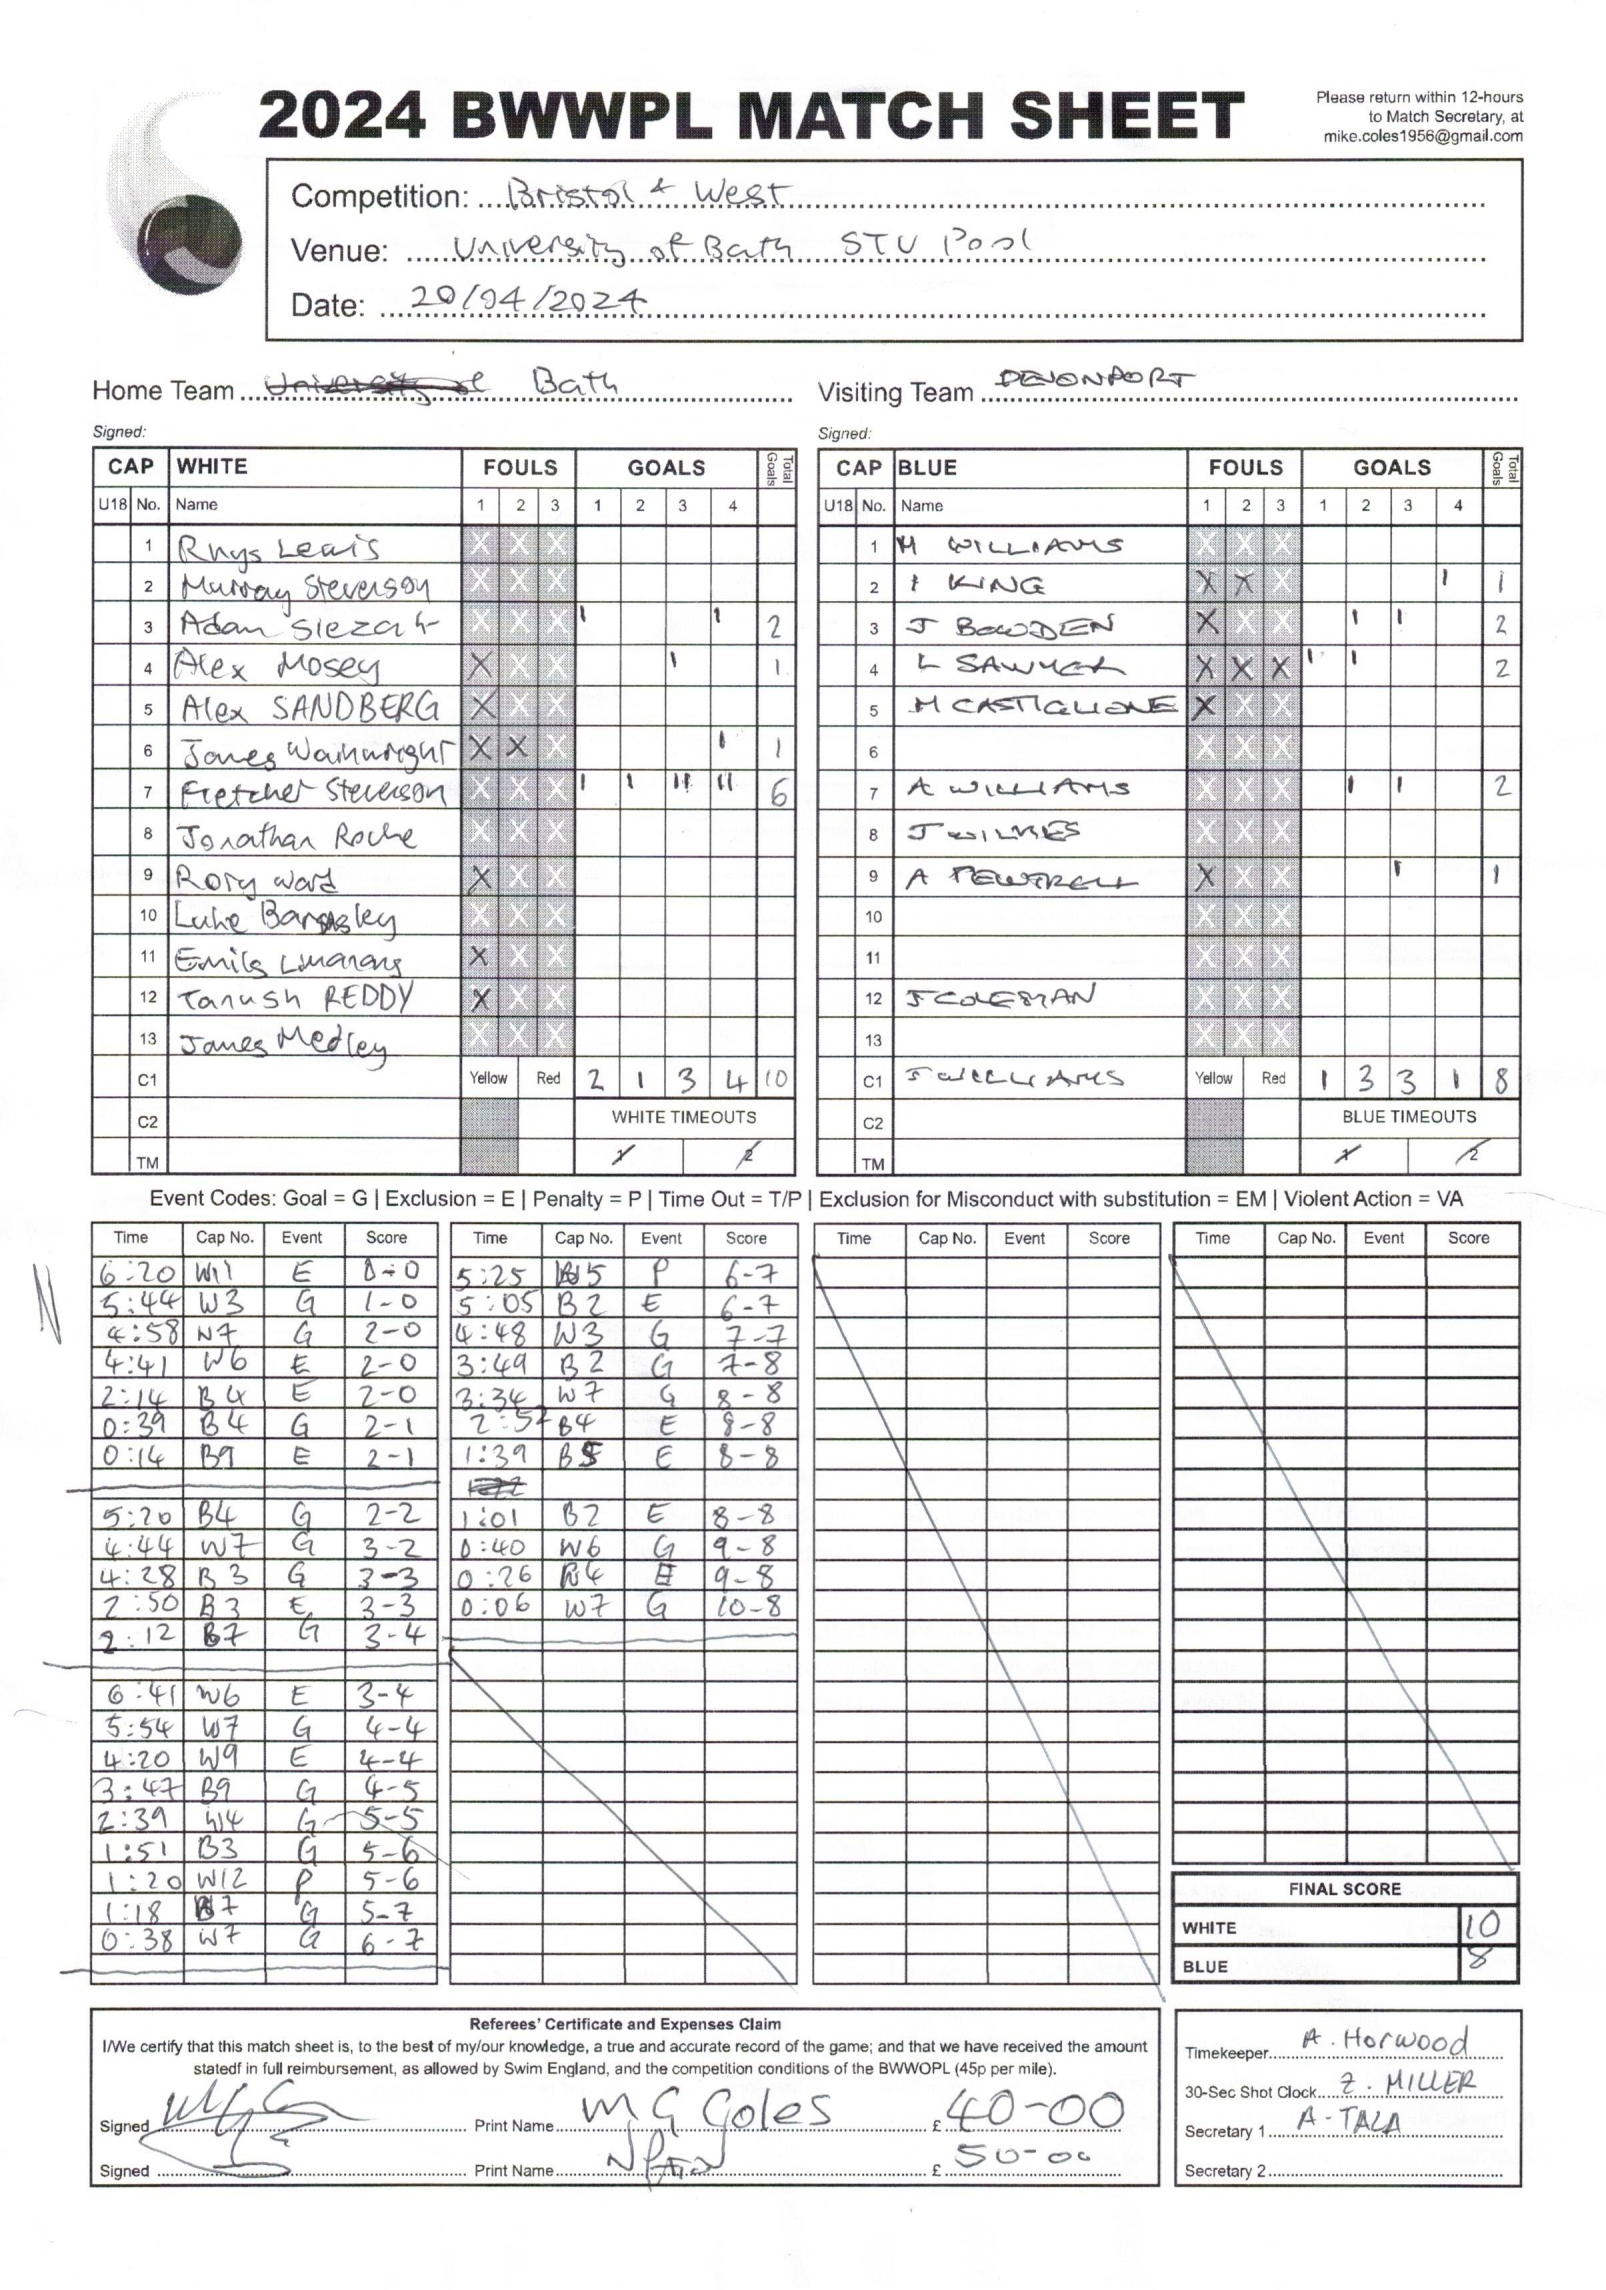 2024 BWWPL MATCH SHEET
Please return within 12-hours
to Match Secretary, at
mike.coles1956@gmail.com
Competition: Bristol & West
Venue: University of Bath STV Pool
Date: 20/04/2024
Home Team Bath
Visiting Team DEVONPORT
Signed:
Signed:
CAP WHITE FOULS GOALS Total Goals
U18 No. Name 1 2 3 1 2 3 4
1 Rhys Lewis X X X
2 Murray Stevenson X X X
3 Adam Slezak X X X 1 1 2
4 Alex Mosey X X X 1 1
5 Alex SANDBERG X X X
6 James Wainwright X X X 1 1
7 Fletcher Stevenson X X X 1 1 11 11 6
8 Jonathan Roche X X X
9 Rory Ward X X X
10 Luke X X X
11 Emils X X X
12 Tanush REDDY X X X
13 James Medley X X X
C1 Yellow Red 2 1 3 4 10
C2 WHITE TIMEOUTS
TM 1 2
CAP BLUE FOULS GOALS Total Goals
U18 No. Name 1 2 3 1 2 3 4
1 M WILLIAMS X X X
2 I KING X X X 1 1
3 J BOWDEN X X X 1 1 2
4 L SAWYER X X X 1 1 2
5 M CASTIGLIONE X X X
6 X X X
7 A WILLIAMS X X X 1 1 2
8 J WILMES X X X
9 A PEWTRELL X X X 1 1
10 X X X
11 X X X
12 J COLEMAN X X X
13 X X X
C1 J WILLIAMS Yellow Red 1 3 3 1 8
C2 BLUE TIMEOUTS
TM 1 2
Event Codes: Goal = G | Exclusion = E | Penalty = P | Time Out = T/P | Exclusion for Misconduct with substitution = EM | Violent Action = VA
Time Cap No. Event Score
6:20 W11 E 0-0
5:44 W3 G 1-0
4:58 W7 G 2-0
4:41 W6 E 2-0
2:14 B4 E 2-0
0:39 B4 G 2-1
0:14 B9 E 2-1
5:20 B4 G 2-2
4:44 W7 G 3-2
4:28 B3 G 3-3
2:50 B3 E 3-3
2:12 B7 G 3-4
6:41 W6 E 3-4
5:54 W7 G 4-4
4:20 W9 E 4-4
3:47 B9 G 4-5
2:39 W4 G 5-5
1:51 B3 G 5-6
1:20 W12 P 5-6
1:18 B7 G 5-7
0:38 W7 G 6-7
Time Cap No. Event Score
5:25 W5 P 6-7
5:05 B2 E 6-7
4:48 W3 G 7-7
3:49 B2 G 7-8
3:34 W7 G 8-8
2:52 B4 E 8-8
1:39 B5 E 8-8
1:01 B2 E 8-8
0:40 W6 G 9-8
0:26 B4 E 9-8
0:06 W7 G 10-8
Time Cap No. Event Score
Time Cap No. Event Score
FINAL SCORE
WHITE 10
BLUE 8
Referees' Certificate and Expenses Claim
I/We certify that this match sheet is, to the best of my/our knowledge, a true and accurate record of the game; and that we have received the amount
statedf in full reimbursement, as allowed by Swim England, and the competition conditions of the BWWOPL (45p per mile).
Signed Print Name M G Coles £ 40-00
Signed Print Name £ 50-00
Timekeeper A. Horwood
30-Sec Shot Clock Z. MILLER
Secretary 1 A-TALA
Secretary 2